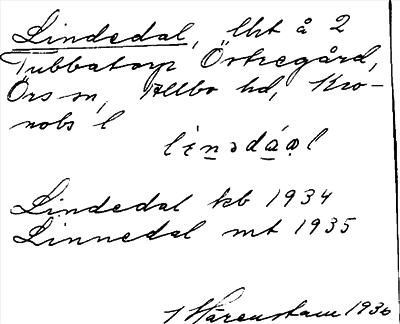 Lindedal, lht å 2
Tubbatorp Östregård,
Örs sn, Allbo hd, Kro-
nobs l
Lindedal kb 1934
Linnedal mt 1935
Härenstam 1936